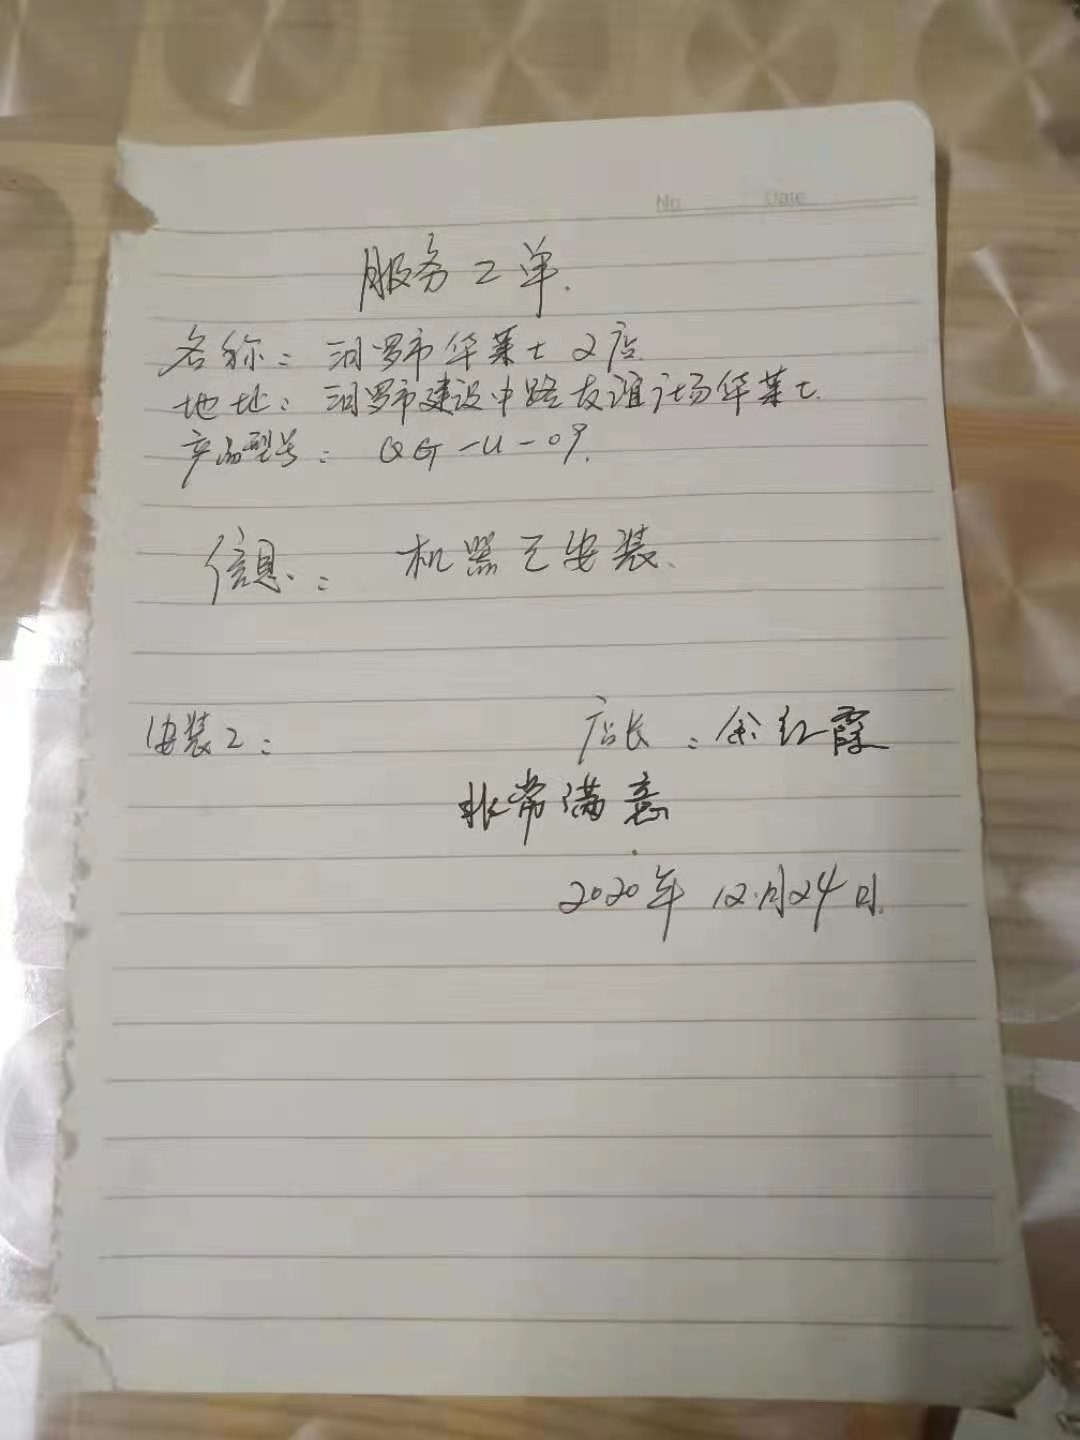 No Date
服务工单.
名称: 汨罗市华莱士2店.
地址: 汨罗市建设中路友谊广场华莱士.
产品型号: QG-U-09.
信息: 机器已安装.
安装工: 店长: 余红霞
非常满意
2020年12月24日.